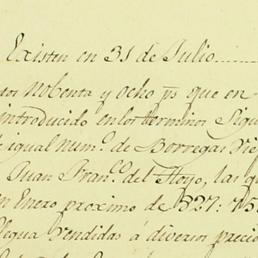 Existen en 31 de Julio
tos nobenta y ocho ps que en
introducido en los terminos Sigu
igual num.o de Borregas Vie
Juan Fran.co del Hoyo, las q
en Enero proximo de 337:75
Yegua vendidas á diversos precio